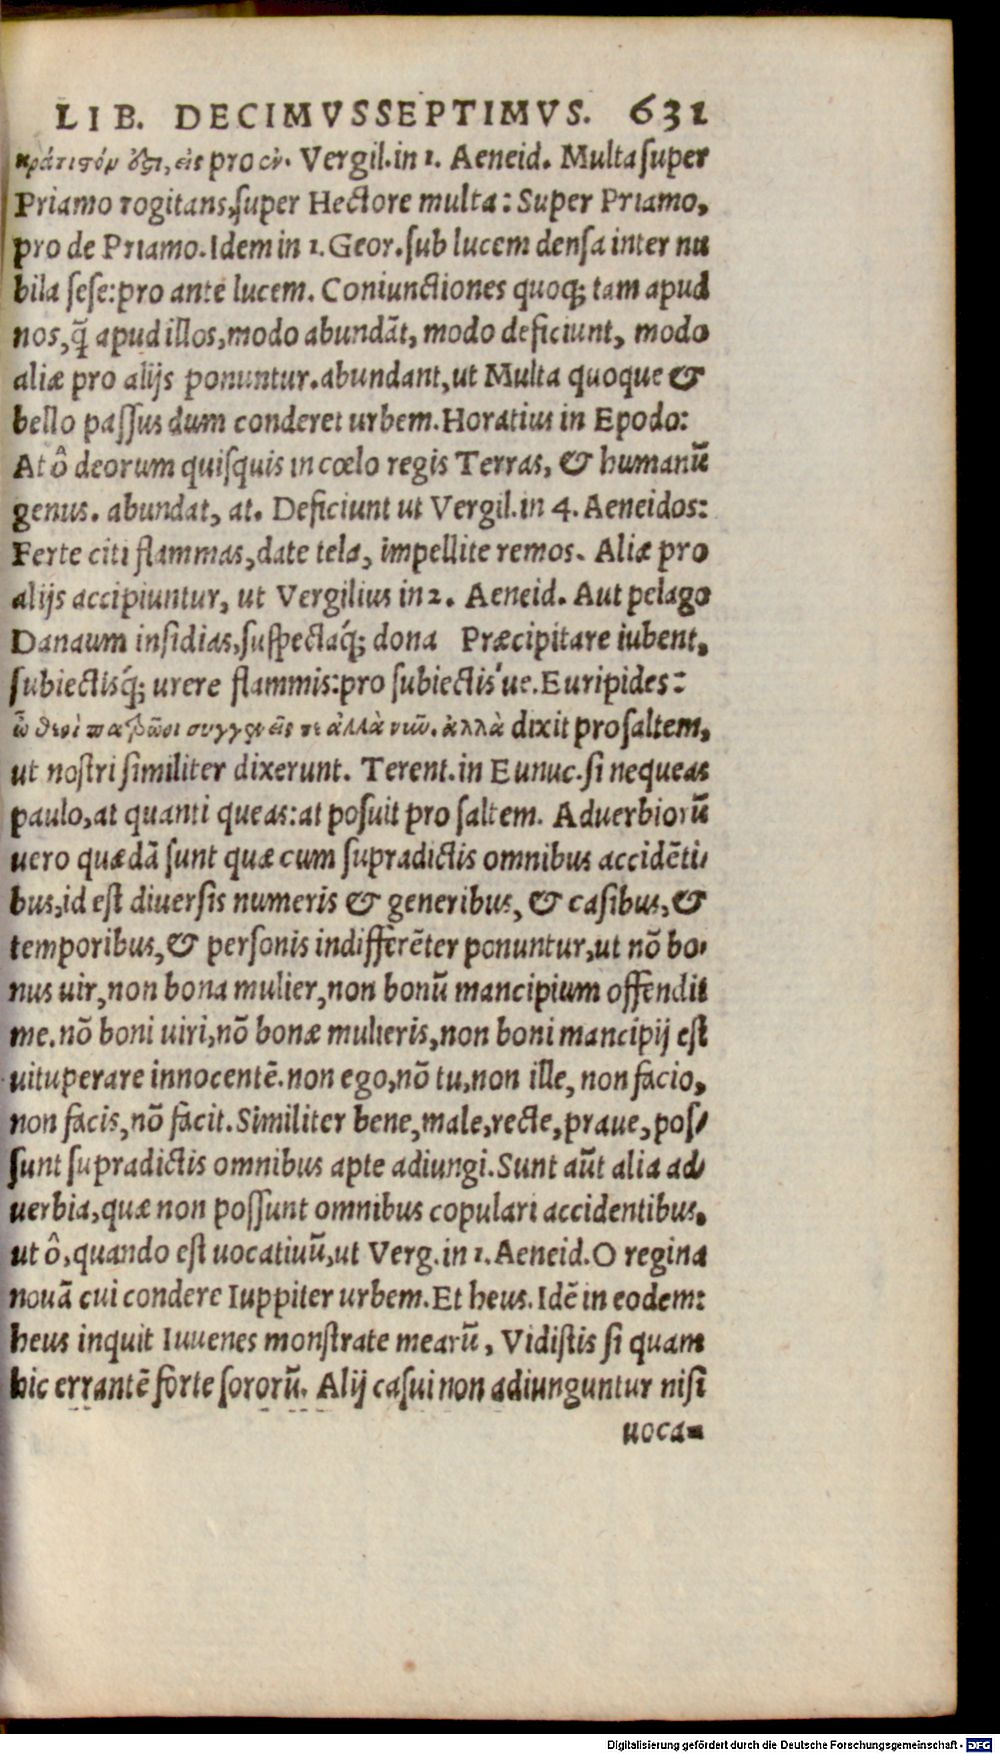 LIB. DECIMVSSEPTIMVS. 631
κράτιστόν ἐστι, εἰς pro ἐν. Vergil.in 1. Aeneid. Multa super
Priamo rogitans, super Hectore multa: Super Priamo,
pro de Priamo. Idem in 1. Geor. sub lucem densa inter nu
bila sese: pro ante lucem. Coniunctiones quoq; tam apud
nos, q̃ apud illos, modo abundãt, modo deficiunt, modo
aliæ pro alijs ponuntur. abundant, ut Multa quoque &
bello passus dum conderet urbem. Horatius in Epodo:
At ô deorum quisquis in cœlo regis Terras, & humanũ
genus. abundat, at. Deficiunt ut Vergil.in 4. Aeneidos:
Ferte citi flammas, date tela, impellite remos. Aliæ pro
alijs accipiuntur, ut Vergilius in 2. Aeneid. Aut pelago
Danaum insidias, suspectaq́; dona Præcipitare iubent,
subiectisq́; urere flammis: pro subiectis'ue. Euripides:
ὦ θεοὶ παρῶσι συγγενεῖς τε ἀλλὰ νιῶ. ἀλλὰ dixit pro saltem,
ut nostri similiter dixerunt. Terent.in Eunuc. si nequeas
paulo, at quanti queas: at posuit pro saltem. Aduerbiorũ
uero quædã sunt quæ cum supradictis omnibus accidẽti-
bus, id est diuersis numeris & generibus, & casibus, &
temporibus, & personis indifferẽter ponuntur, ut nõ bo-
nus uir, non bona mulier, non bonũ mancipium offendit
me. nõ boni uiri, nõ bonæ mulieris, non boni mancipij est
uituperare innocentẽ. non ego, nõ tu, non ille, non facio,
non facis, nõ facit. Similiter bene, male, recte, praue, pos-
sunt supradictis omnibus apte adiungi. Sunt aũt alia ad-
uerbia, quæ non possunt omnibus copulari accidentibus,
ut ô, quando est uocatiuũ, ut Verg.in 1. Aeneid. O regina
nouã cui condere Iuppiter urbem. Et heus. Idẽ in eodem:
heus inquit Iuuenes monstrate mearũ, Vidistis si quam
hic errantẽ forte sororũ. Alij casui non adiunguntur nisi
uoca=
Digitalisierung gefördert durch die Deutsche Forschungsgemeinschaft - DFG